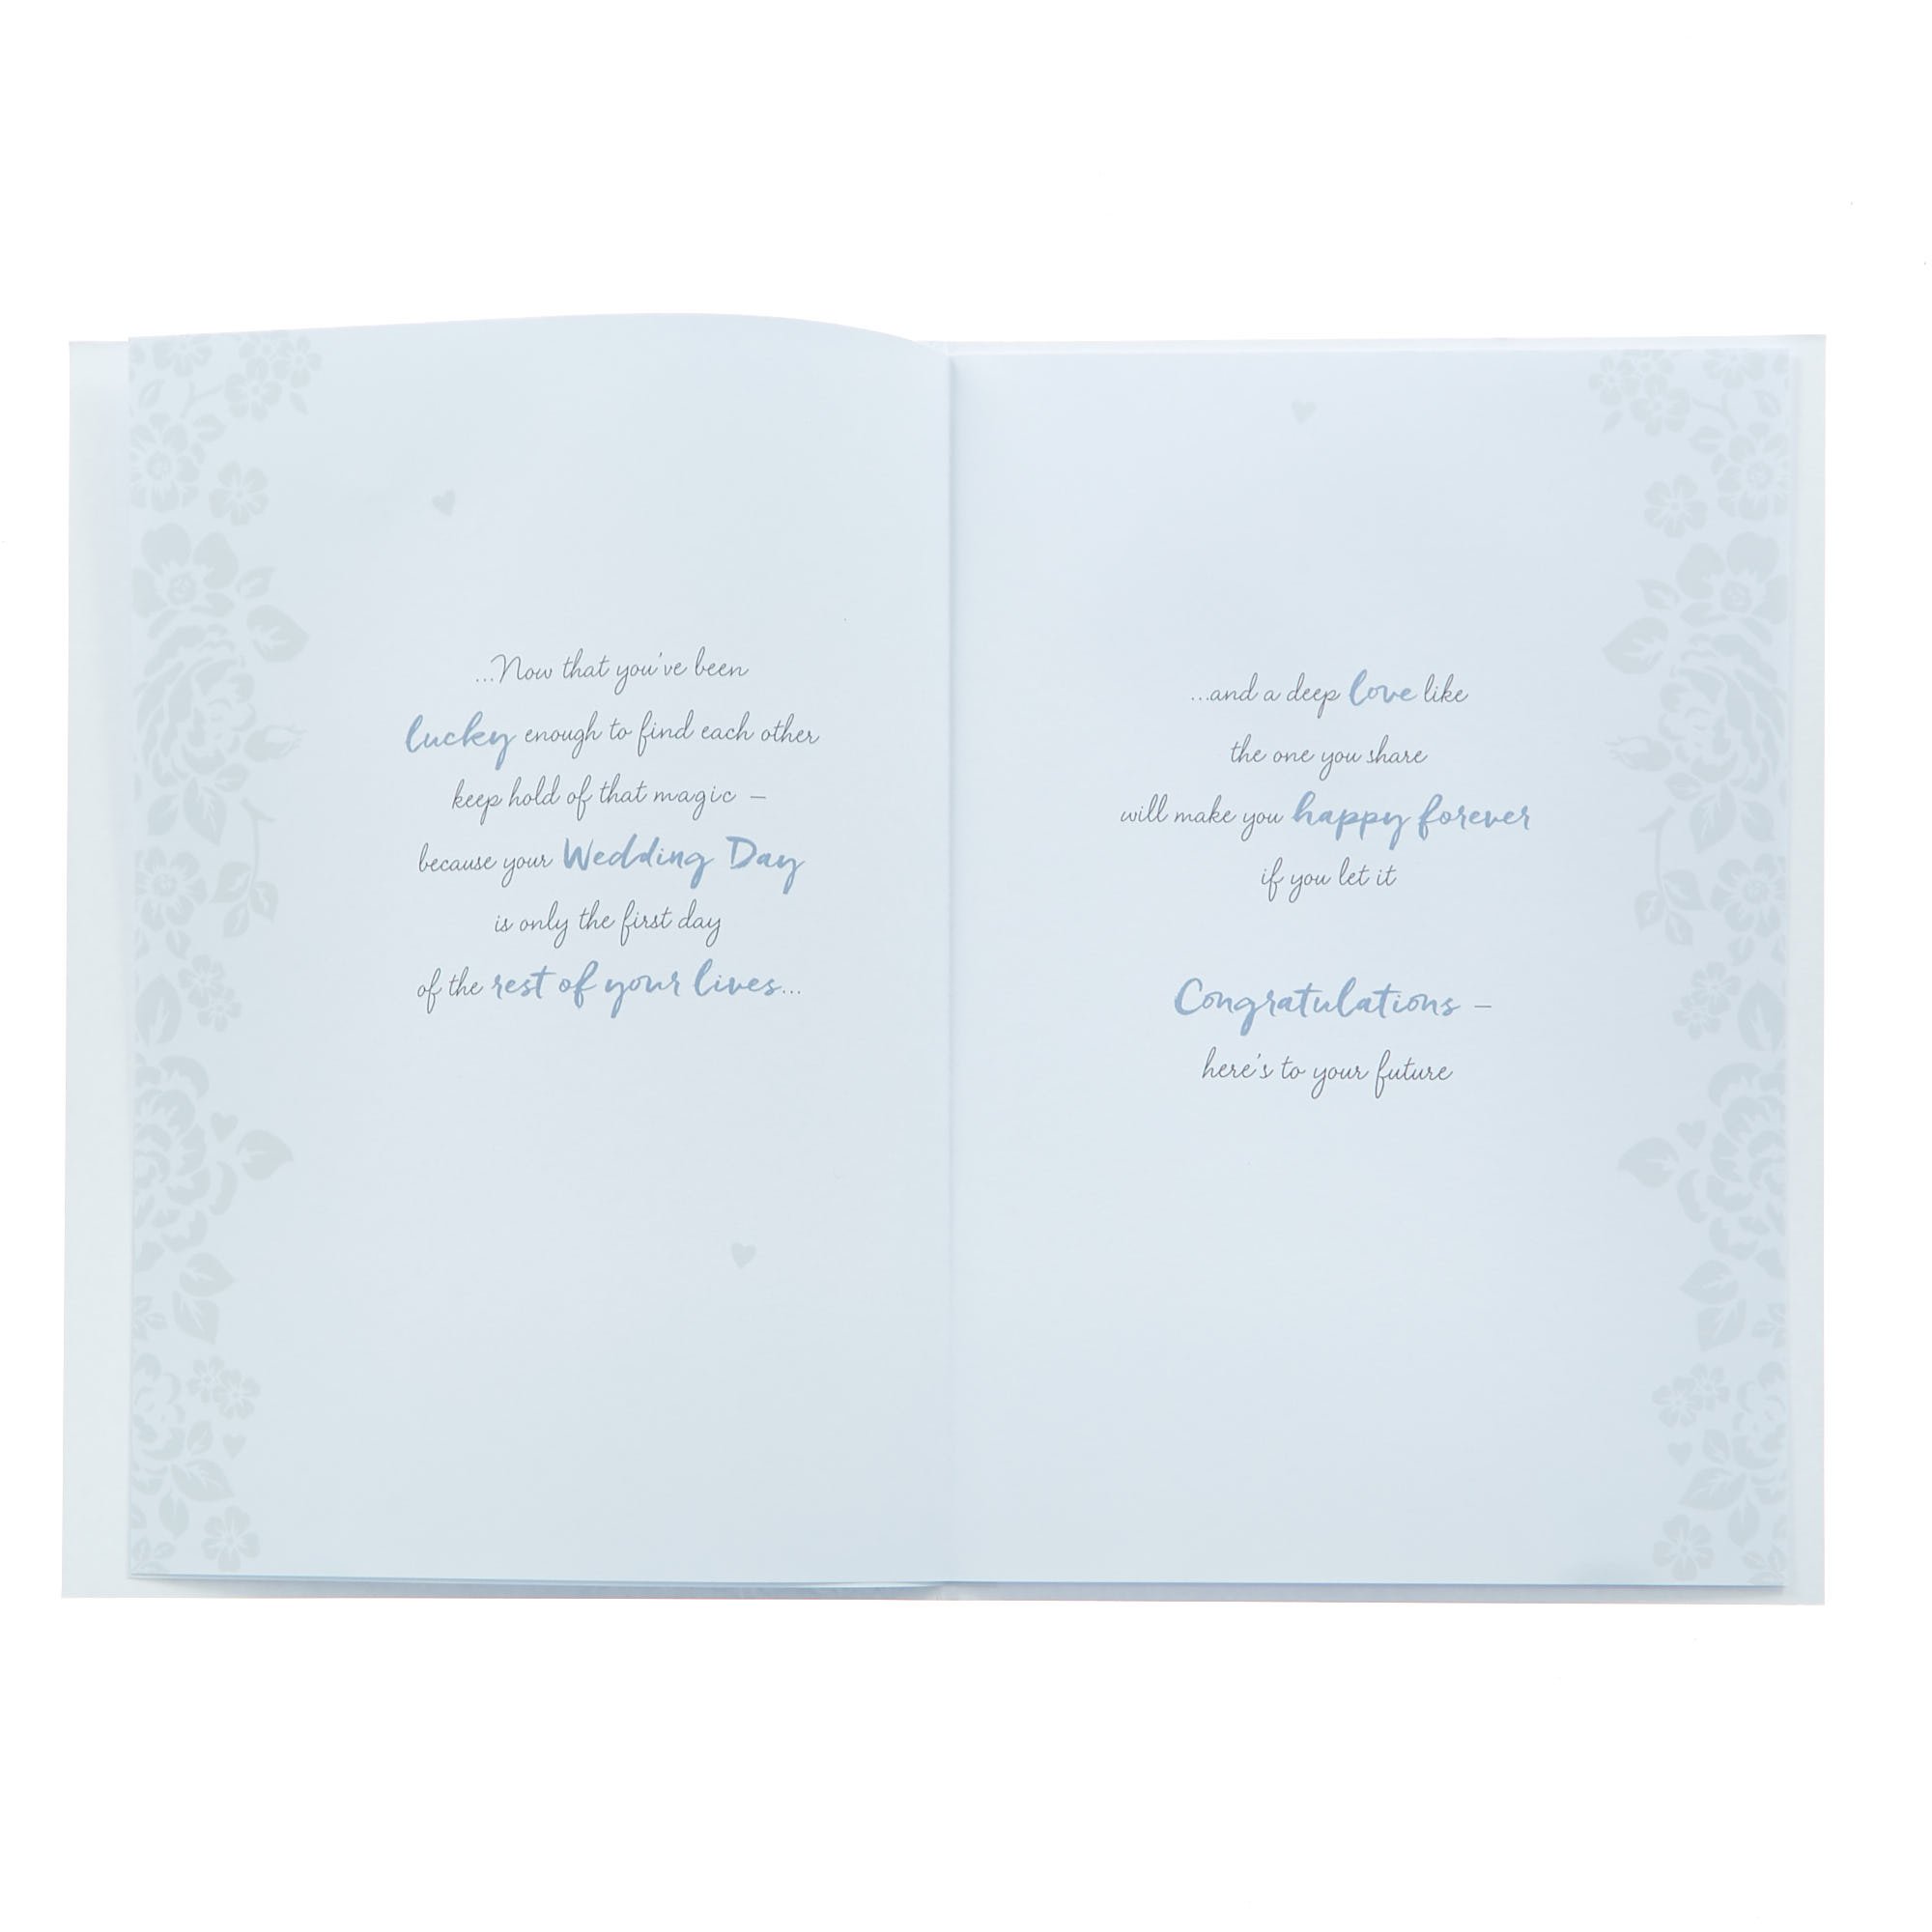 ...Now that you've been
lucky enough to find each other
keep hold of that magic –
because your Wedding Day
is only the first day
of the rest of your lives...
...and a deep love like
the one you share
will make you happy forever
if you let it
Congratulations –
here's to your future